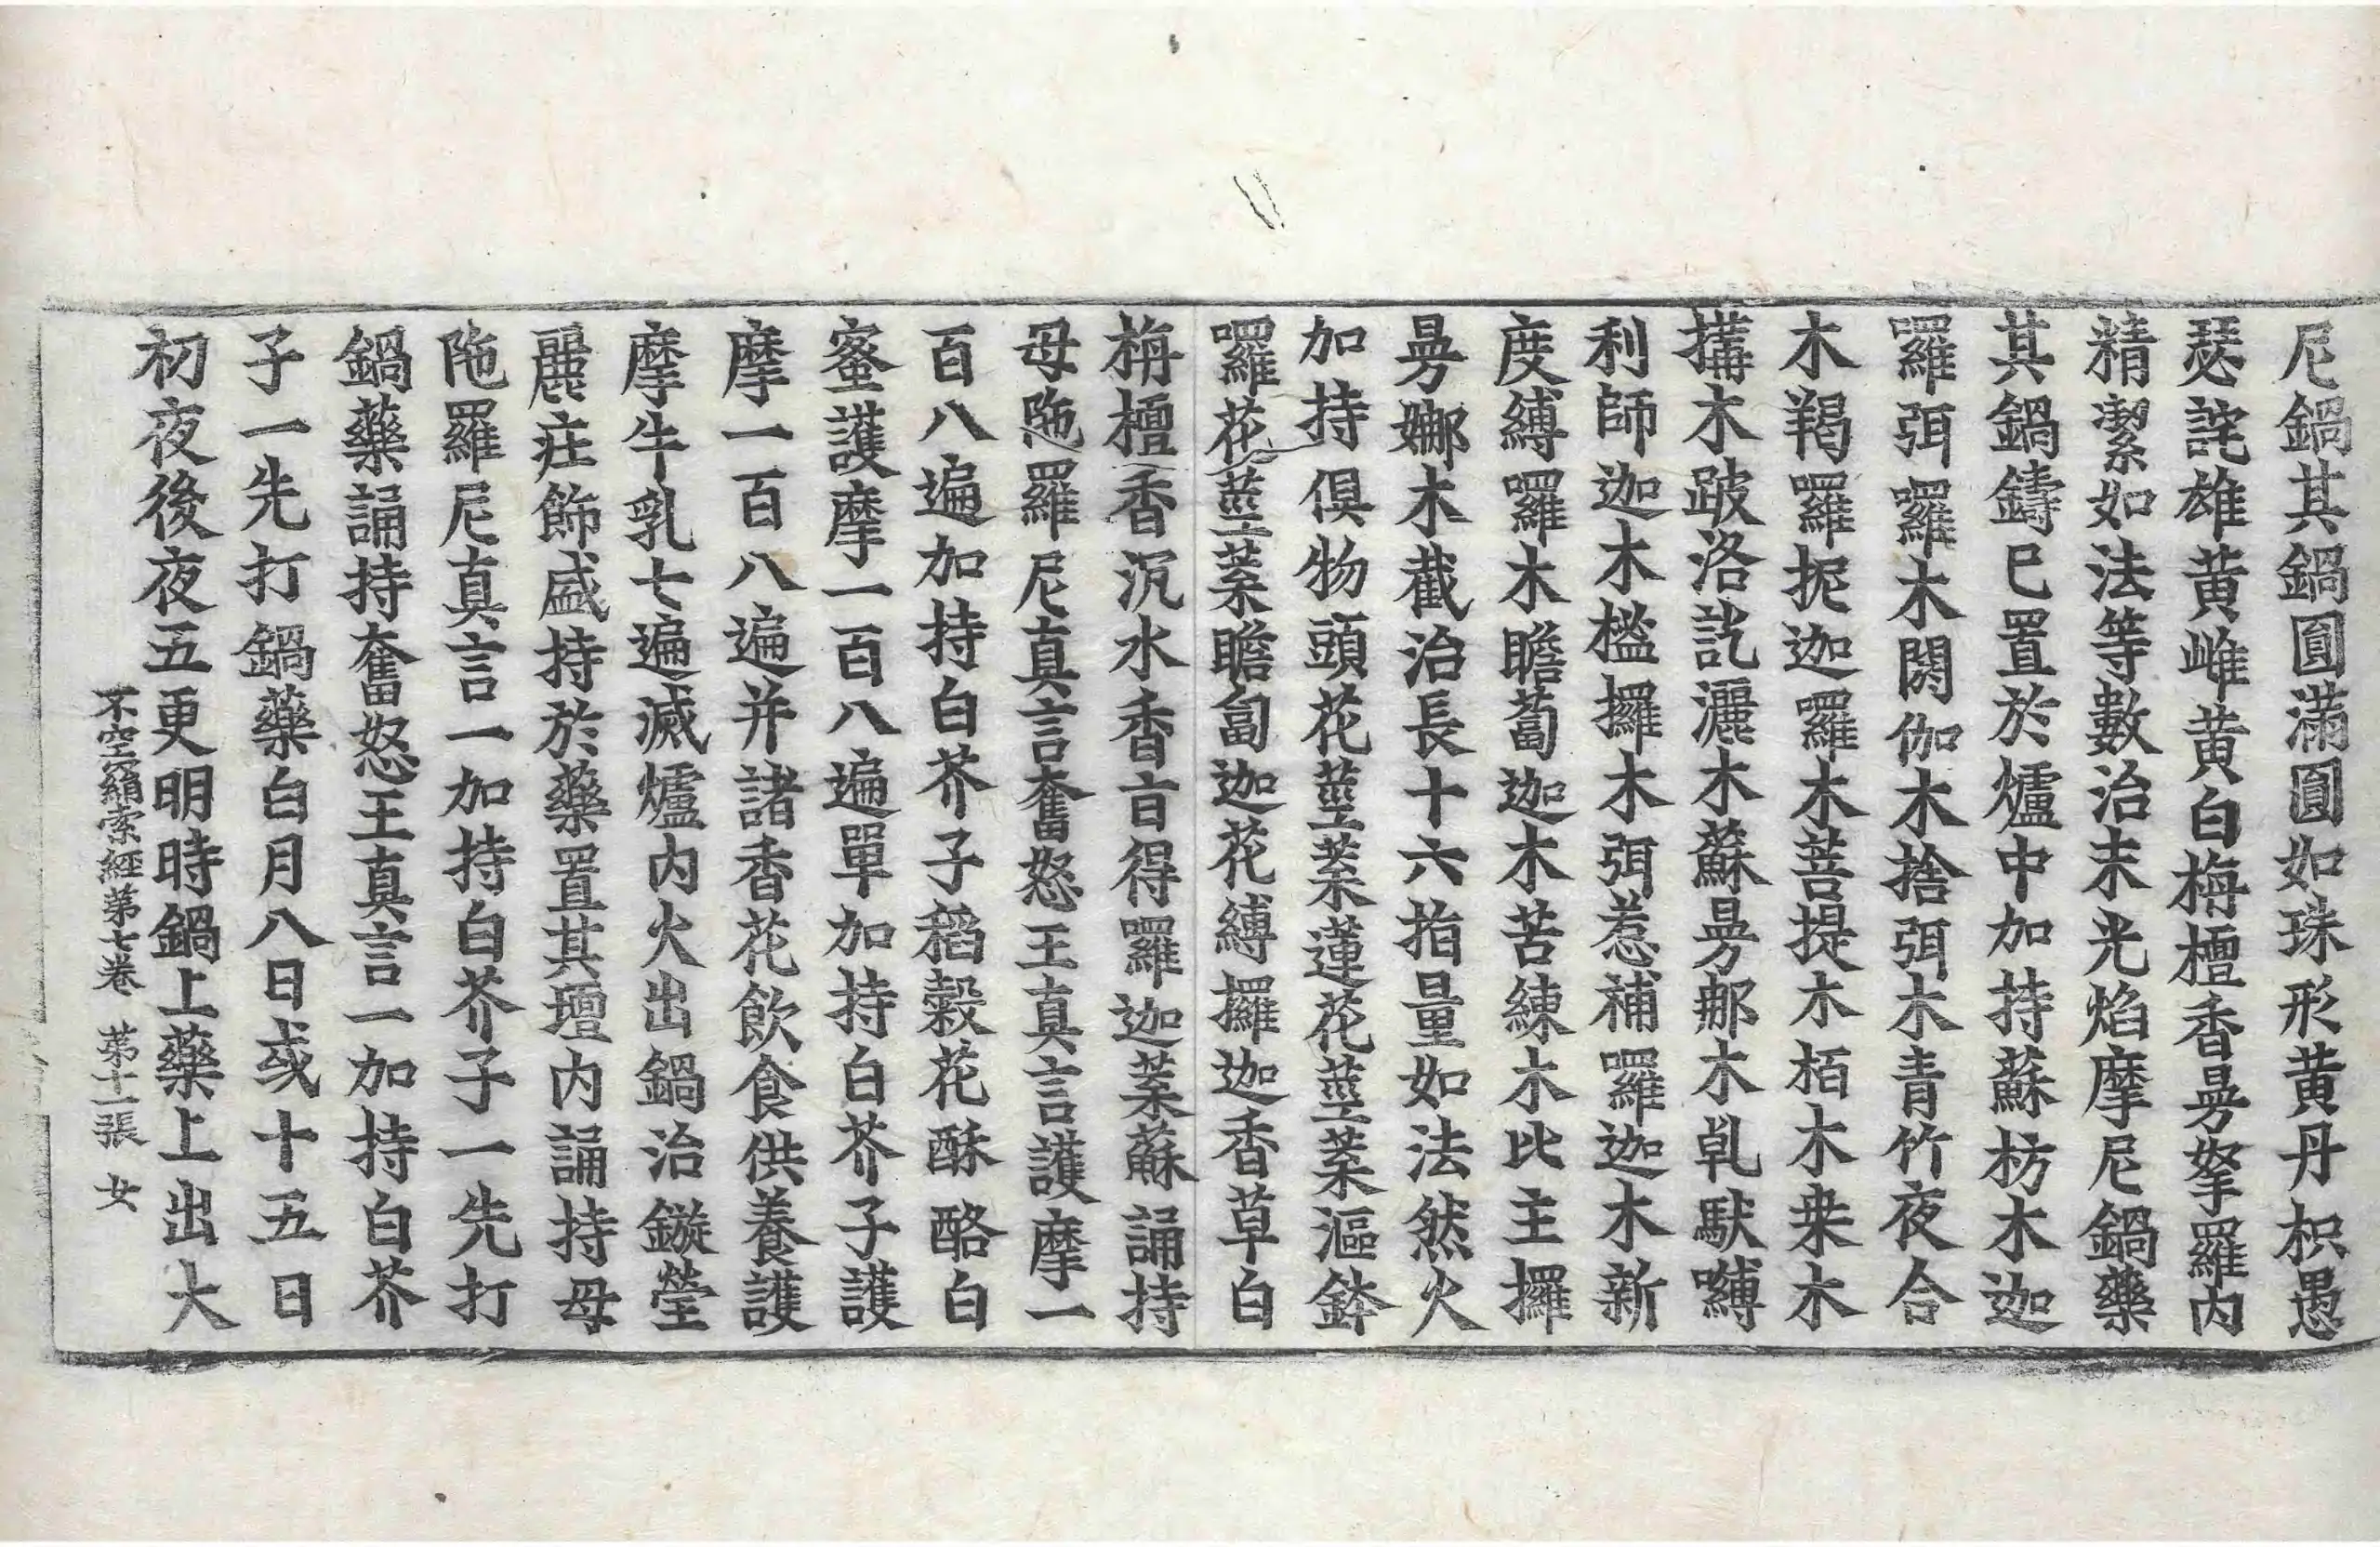 尼鍋其鍋圓滿圓如珠形黃丹枳愚
瑟詫雄黃雌黃白栴檀香曼拏羅內
精潔如法等數治末光焰摩尼鍋藥
其鍋鑄已置於爐中加持蘇枋木迦
囉弭囉木閼伽木捨弭木青竹夜合
木羯囉抳迦囉木菩提木栢木桒木
搆木跛洛訖灑木蘇曼那木乹馱嚩
利師迦木㯿攞木弭惹補囉迦木新
度縛囉木瞻蔔迦木苦練木比主攞
曼娜木截治長十六指量如法然火
加持俱物頭花莖葉蓮花莖葉漚鉢
囉花莖葉瞻匐迦花縛攞迦香草白
栴檀香沉水香𣅀得囉迦葉蘇誦持
母陁羅尼真言奮怒王真言護摩一
百八遍加持白芥子稻穀花酥酪白
蜜護摩一百八遍單加持白芥子護
摩一百八遍并諸香花飲食供養護
摩牛乳七遍滅爐內火出鍋治鏇瑩
麗莊飾盛持於藥置其壇內誦持母
陁羅尼真言一加持白芥子一先打
鍋藥誦持奮怒王真言一加持白芥
子一先打鍋藥白月八日或十五日
初夜後夜五更明時鍋上藥上出大
不空羂索經第七卷 第十一張 女